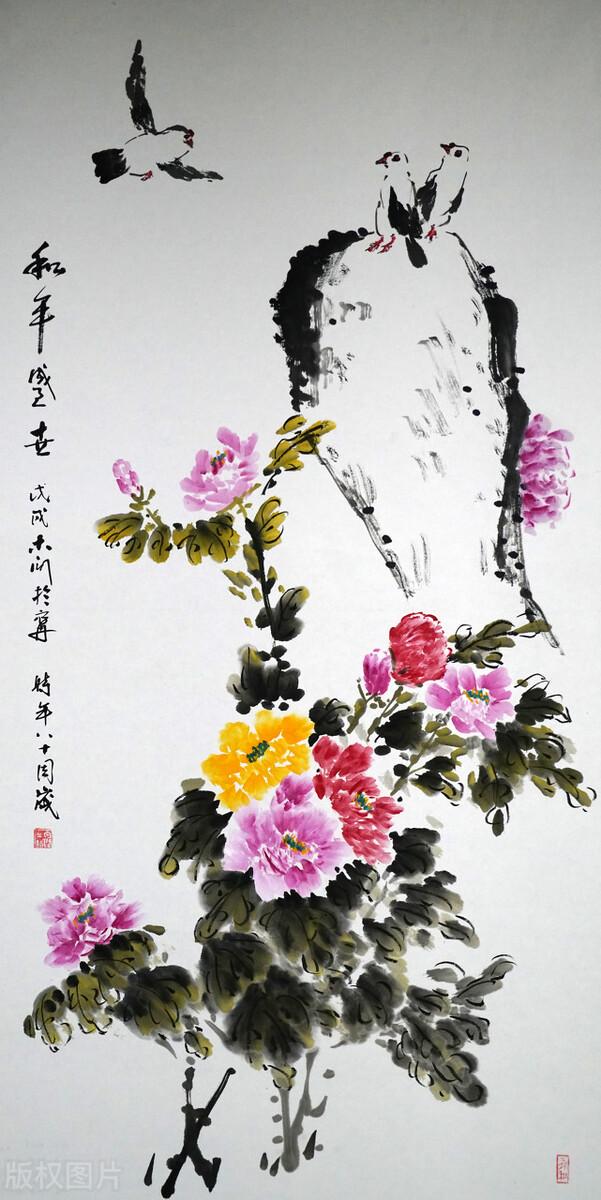 和平盛世
戊戌於寧 時年八十周歲
版权图片